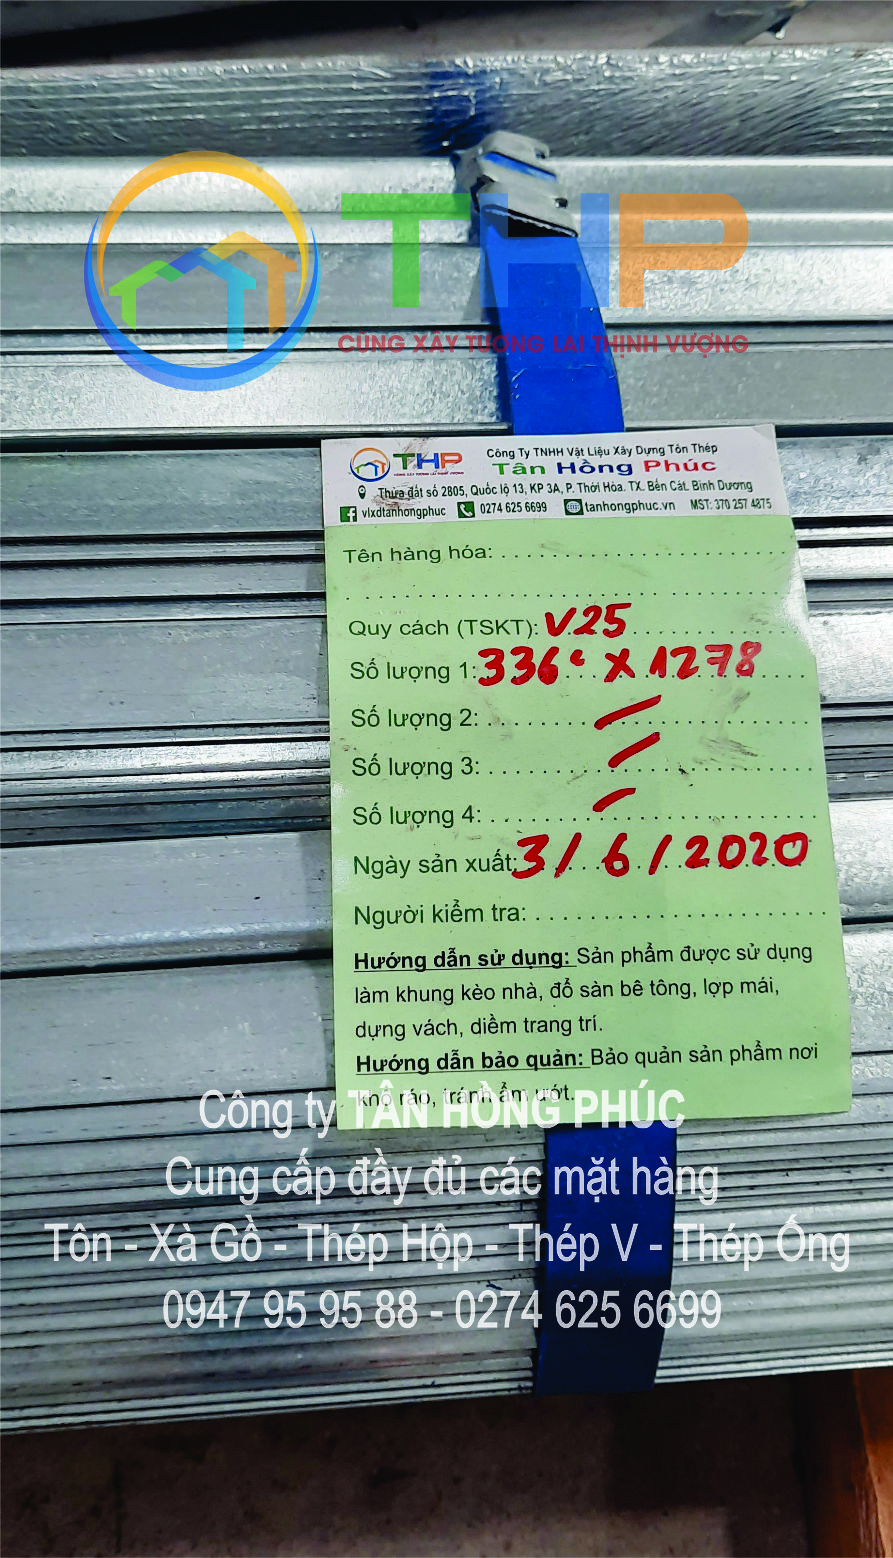 THP
CÙNG XÂY TƯƠNG LAI THỊNH VƯỢNG
THP
CÙNG XÂY TƯƠNG LAI THỊNH VƯỢNG
Công Ty TNHH Vật Liệu Xây Dựng Tôn Thép
Tân Hồng Phúc
Thửa đất số 2805, Quốc lộ 13, KP 3A, P. Thới Hòa. TX. Bến Cát. Bình Dương
vlxdtanhongphuc 0274 625 6699 tanhongphuc.vn MST: 370 257 4875
Tên hàng hóa:
Quy cách (TSKT): V25
Số lượng 1: 336c x 1278
Số lượng 2: /
Số lượng 3: /
Số lượng 4: /
Ngày sản xuất: 3/6/2020
Người kiểm tra:
Hướng dẫn sử dụng: Sản phẩm được sử dụng
làm khung kèo nhà, đổ sàn bê tông, lợp mái,
dựng vách, diềm trang trí.
Hướng dẫn bảo quản: Bảo quản sản phẩm nơi
khô ráo, tránh ẩm ướt.
Công ty TÂN HỒNG PHÚC
Cung cấp đầy đủ các mặt hàng
Tôn - Xà Gồ - Thép Hộp - Thép V - Thép Ống
0947 95 95 88 - 0274 625 6699